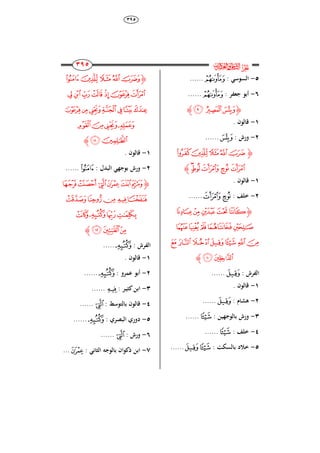 ٣٩٥
٣٩٥
٥- السوسي : وَمَأْوَىٰهُمْ ......
٦- أبو جعفر : وَمَأْوَىٰهُمْ ......
﴿ وَبِئْسَ ٱلْمَصِيرُ ۝٩ ﴾
١- قالون .
٢- ورش : وَبِئْسَ ......
﴿ ضَرَبَ ٱللَّهُ مَثَلًا لِّلَّذِينَ كَفَرُوا۟
ٱمْرَأَتَ نُوحٍ وَٱمْرَأَتَ لُوطٍ ﴾
١- قالون .
٢- خلف : نُوحٍ وَٱمْرَأَتَ ......
﴿ كَانَتَا تَحْتَ عَبْدَيْنِ مِنْ عِبَادِنَا
صَٰلِحَيْنِ فَخَانَتَاهُمَا فَلَمْ يُغْنِيَا عَنْهُمَا
مِنَ ٱللَّهِ شَيْـًٔا وَقِيلَ ٱدْخُلَا ٱلنَّارَ مَعَ
ٱلدَّٰخِلِينَ ۝١٠ ﴾
الفرش : وَقِيلَ ......
١- قالون .
٢- هشام : وَقِيلَ ......
٣- ورش بالوجهين : شَيْـًٔا ......
٤- خلف : شَيْـًٔا ......
٥- خلاد بالسكت : شَيْـًٔا وَقِيلَ ......
﴿ وَضَرَبَ ٱللَّهُ مَثَلًا لِّلَّذِينَ ءَامَنُوا۟
ٱمْرَأَتَ فِرْعَوْنَ إِذْ قَالَتْ رَبِّ ٱبْنِ لِى
عِندَكَ بَيْتًا فِى ٱلْجَنَّةِ وَنَجِّنِى مِن فِرْعَوْنَ
وَعَمَلِهِۦ وَنَجِّنِى مِنَ ٱلْقَوْمِ
ٱلظَّٰلِمِينَ ۝١١ ﴾
١- قالون .
٢- ورش بوجهي البدل : ءَامَنُوا۟ ......
﴿ وَمَرْيَمَ ٱبْنَتَ عِمْرَٰنَ ٱلَّتِىٓ أَحْصَنَتْ فَرْجَهَا
فَنَفَخْنَا فِيهِ مِن رُّوحِنَا وَصَدَّقَتْ
بِكَلِمَٰتِ رَبِّهَا وَكُتُبِهِۦ وَكَانَتْ
مِنَ ٱلْقَٰنِتِينَ ۝١٢ ﴾
الفرش : وَكُتُبِهِۦ......
١- قالون .
٢- أبو عمرو : وَكُتُبِهِۦ......
٣- ابن كثير : فِيهِ ......
٤- قالون بالتوسط : ٱلَّتِىٓ ......
٥- دوري البصري : وَكُتُبِهِۦ......
٦- ورش : ٱلَّتِىٓ ......
٧- ابن ذكوان بالوجه الثاني : عِمْرَٰنَ ...